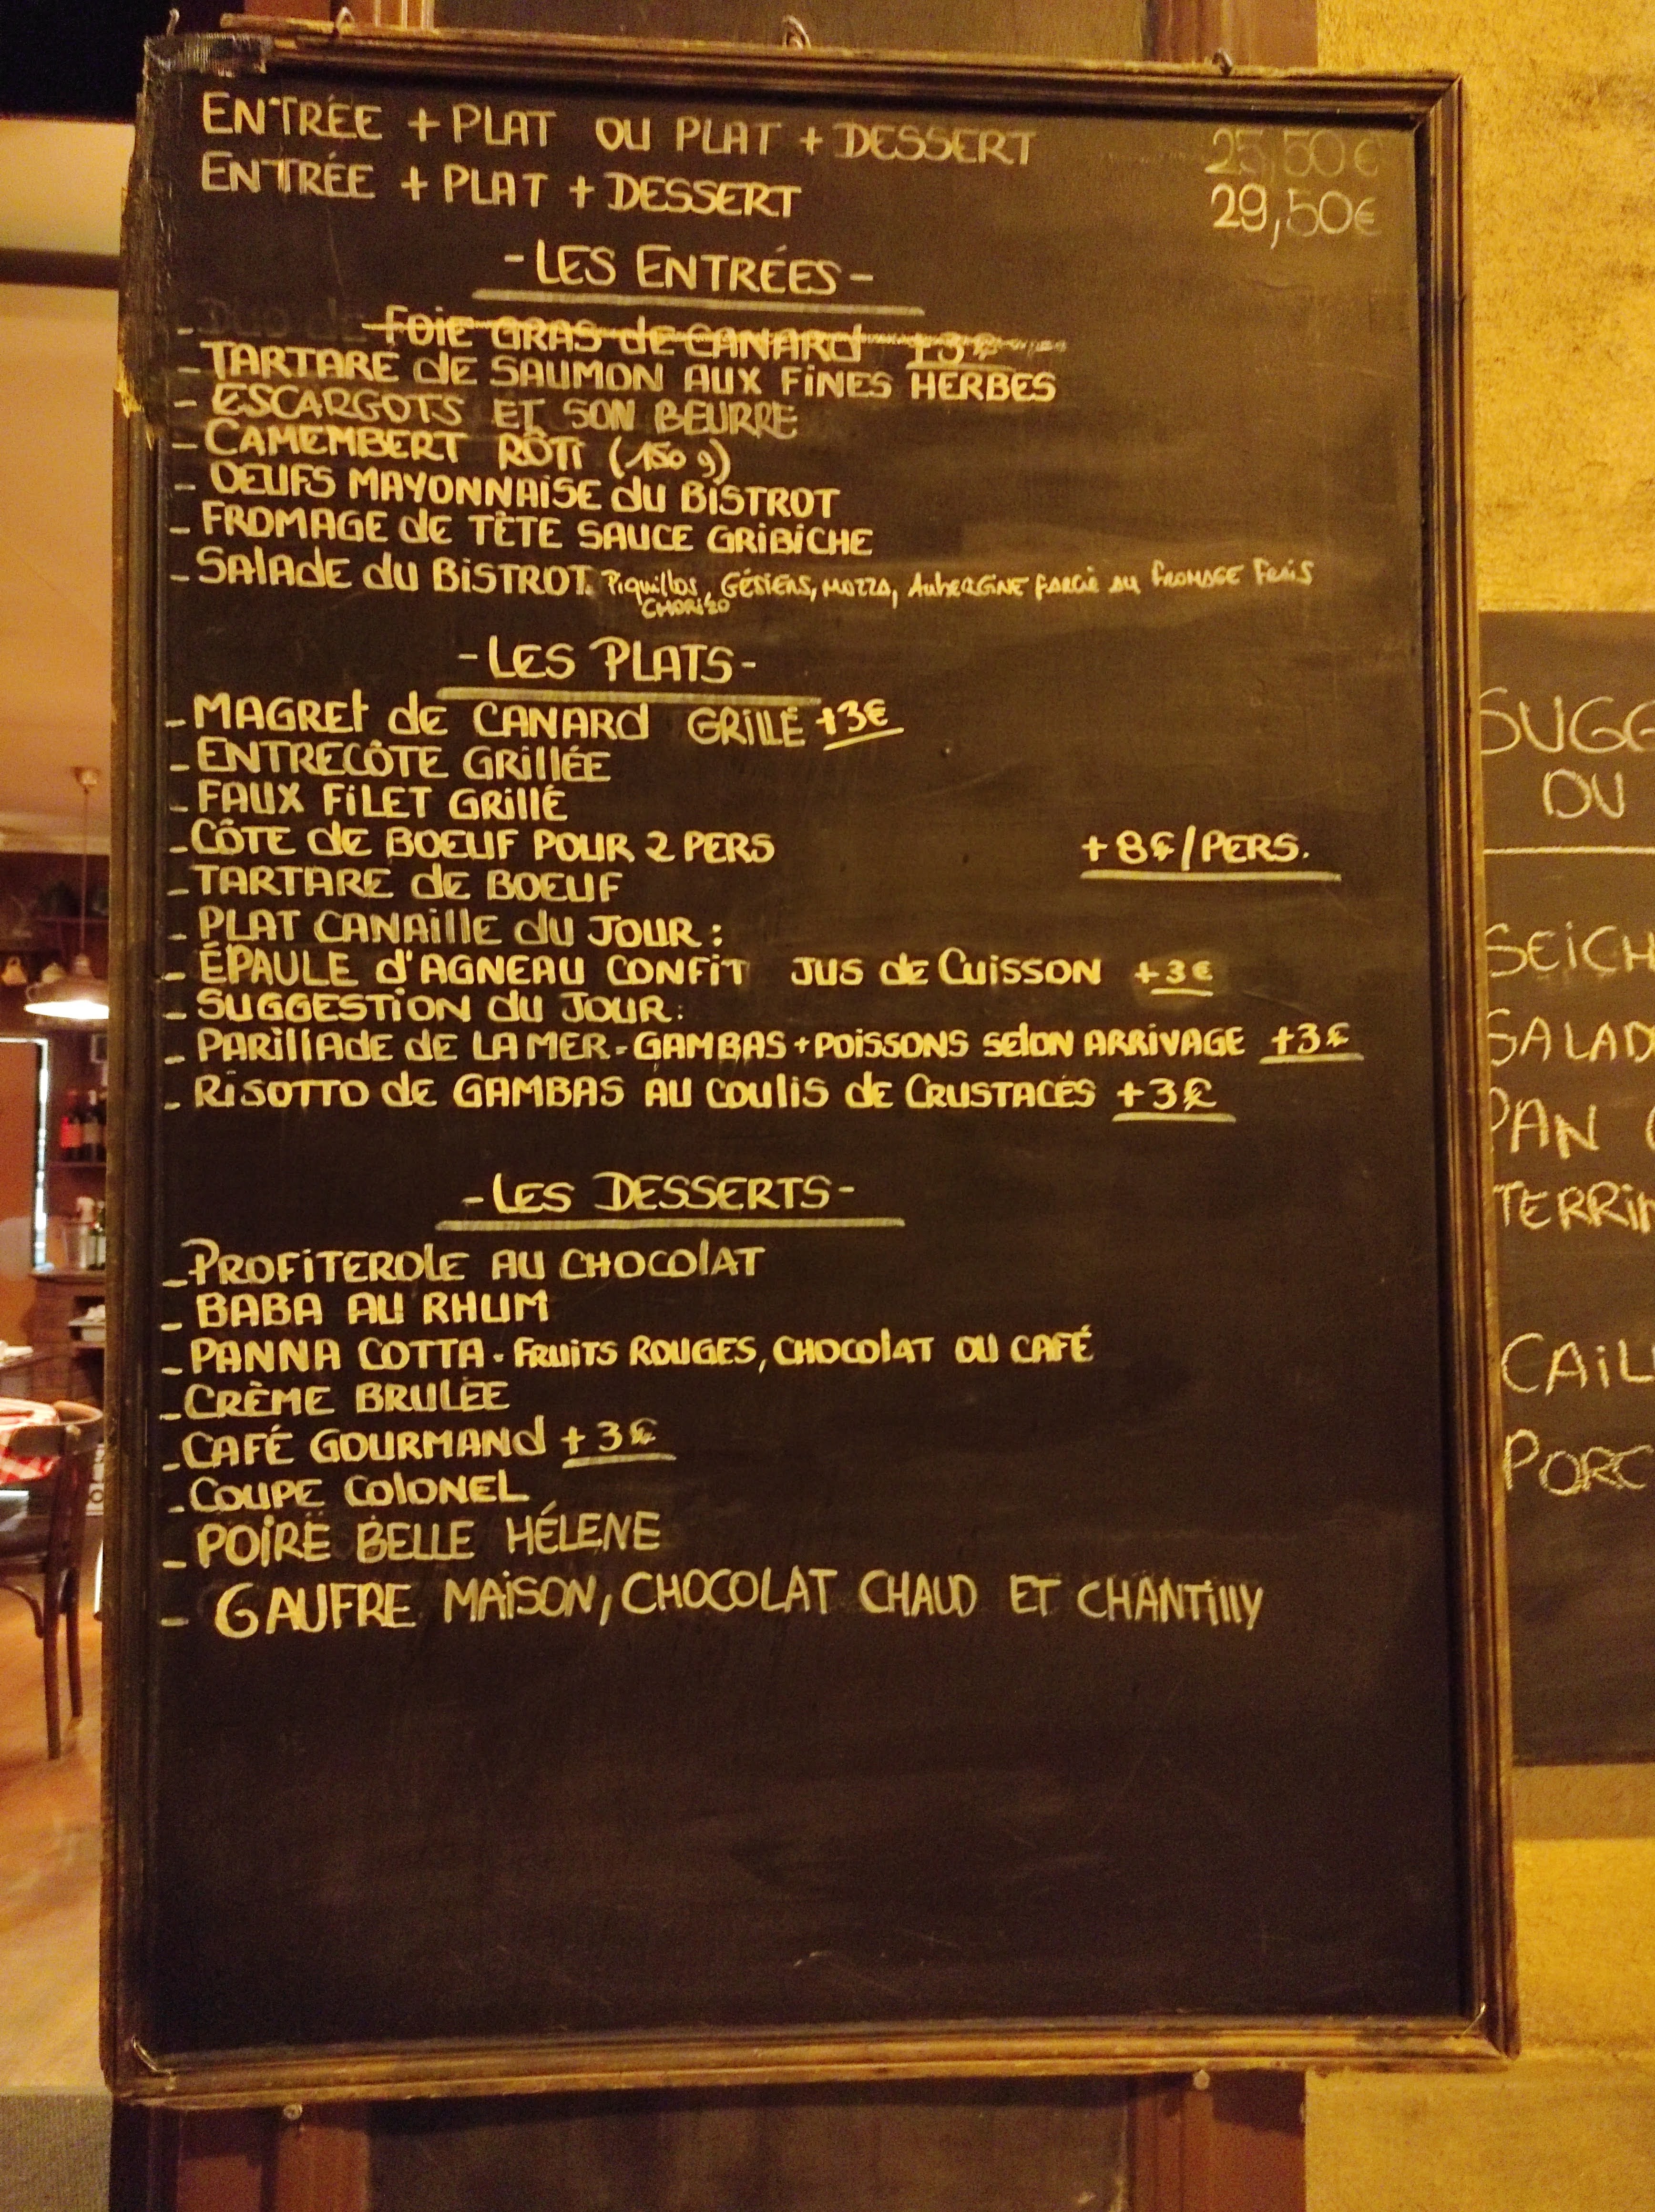 ENTRÉE + PLAT OU PLAT + DESSERT 25,50€
ENTRÉE + PLAT + DESSERT 29,50€
- LES ENTRÉES -
- DUO de FOIE GRAS de CANARD +3€
- TARTARE de SAUMON AUX FINES HERBES
- ESCARGOTS ET SON BEURRE
- CAMEMBERT RÔTI (150 g)
- OEUFS MAYONNAISE du BISTROT
- FROMAGE de TÊTE SAUCE GRIBICHE
- SALADE du BISTROT. Piquillos, GÉSIERS, MOZZA, AUBERGINE FARCIE AU FROMAGE FRAIS
CHORIZO
- LES PLATS -
- MAGRET de CANARD GRILLÉ +3€
- ENTRECÔTE GRILLÉE
- FAUX FILET GRILLÉ
- CÔTE de BOEUF POUR 2 PERS +8€/PERS.
- TARTARE de BOEUF
- PLAT CANAILLE du JOUR :
- ÉPAULE d'AGNEAU CONFIT JUS de CUISSON +3€
- SUGGESTION du JOUR:
- PARILLADE de LA MER - GAMBAS + POISSONS SELON ARRIVAGE +3€
- RISOTTO de GAMBAS AU COULIS de CRUSTACÉS +3€
- LES DESSERTS -
- PROFITEROLE AU CHOCOLAT
- BABA AU RHUM
- PANNA COTTA - FRUITS ROUGES, CHOCOLAT OU CAFÉ
- CRÈME BRULÉE
- CAFÉ GOURMAND +3€
- COUPE COLONEL
- POIRE BELLE HÉLENE
- GAUFRE MAISON, CHOCOLAT CHAUD ET CHANTILLY
SUGG
DU
SEICH
SALAD
PAN
TERRIN
CAILL
PORC